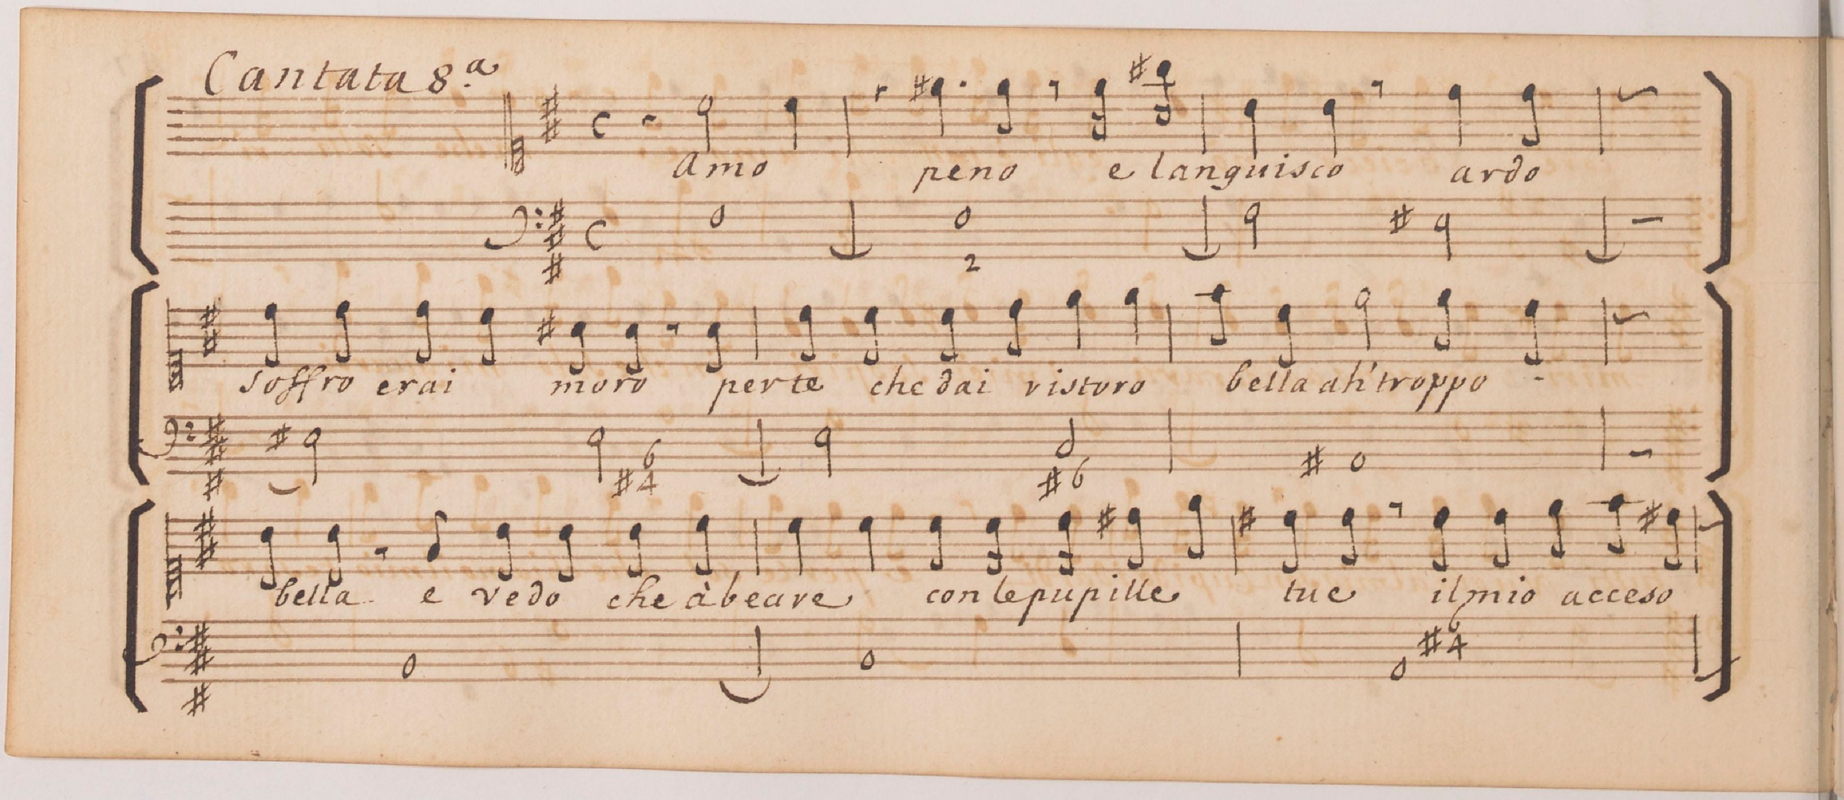 Cantata 8.a
Amo peno e languisco ardo
2
soffro e rai moro per te che dai ristoro bella ah' troppo
6 4 6
bella e vedo che à beare con le pupille tue il mio acceso
6 4